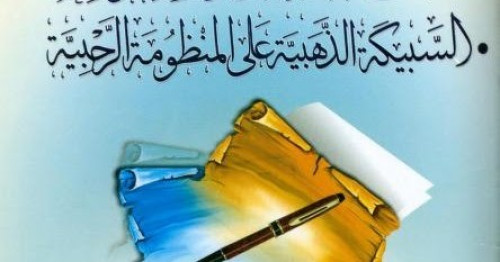 • السَّبِيكَة الذَّهَبِيَّة عَلَى المَنْظُومَة الرَّحْبِيَّة